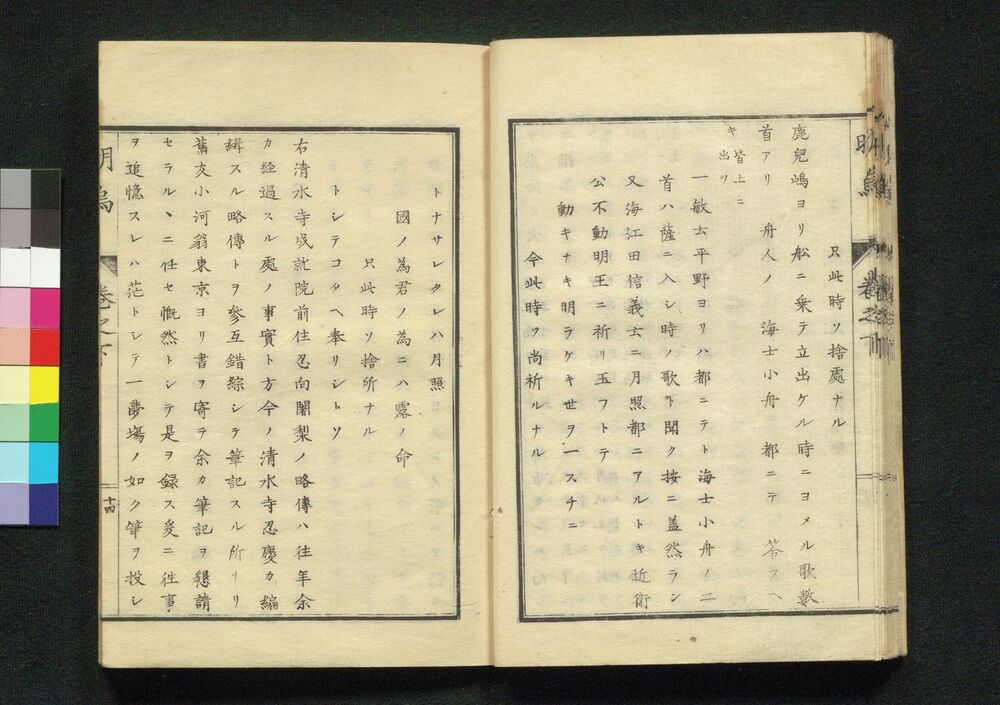 只此時ソ捨處ナル
鹿兒嶋ヨリ船ニ乗テ立出ケル時ニヨメル歌數
首アリ 舟人ノ 海士小舟 都ニテ 答フヘ
キ 皆上ニ出ツ
一敏云平野ヨリハ都ニテト海士小舟ノ二
首ハ薩ニ入シ時ノ歌ト聞ク按ニ盖然ラン
又海江田信義云ニ月照都ニアルトキ近衛
公不動明王ニ祈リ玉フトテ
動キナキ明ラケキ世ヲ一スチニ
今此時ソ尚祈ルナル
明烏 卷之下
トナサレタレハ月照
國ノ為君ノ為ニハ露ノ命
只此時ソ捨所ナル
トシテコタヘ奉リシトソ
右清水寺成就院前住忍向闍梨ノ略傳ハ往年余
カ經過スル處ノ事實ト方今ノ清水寺忍慶カ編
緝スル略傳トヲ參互錯綜シテ筆記スル所リリ
舊友小河翁東京ヨリ書ヲ寄テ余カ筆記ヲ懇請
セラルヽニ任セ慨然トシテ是ヲ録ス爰ニ往事
ヲ追憶スレハ茫トシテ一夢場ノ如ク筆ヲ投シ
明烏 卷之下 十四